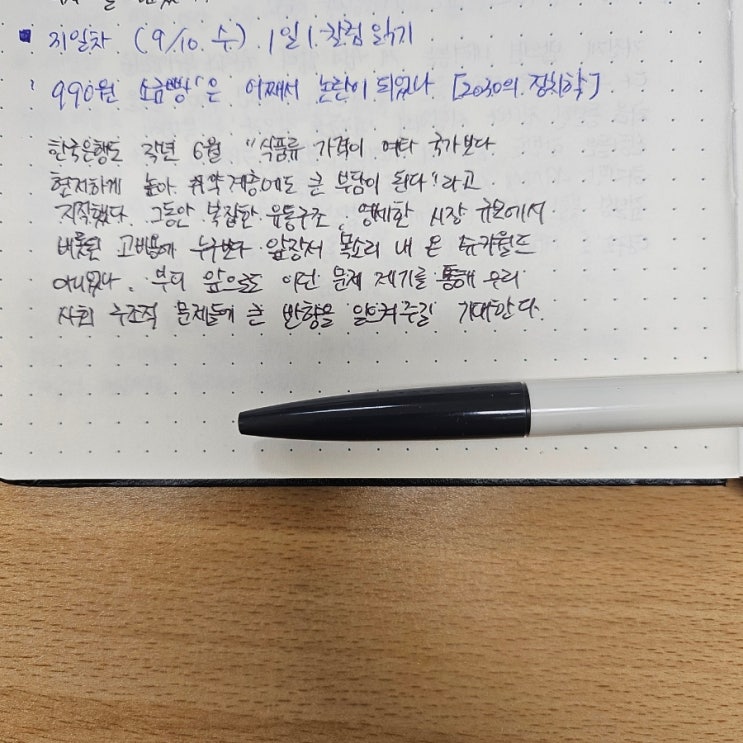 31일차 (9/10. 수). 1일 1.칼럼 읽기
'990원 소금빵'은 어째서 논란이 되었나 [2030의 정치학]
한국은행도 작년 6월 "식품류 가격이 여타 국가보다
현저하게 높아 취약계층에도 큰 부담이 된다"라고
지적했다. 그동안 복잡한 유통구조, 영세한 시장 규모에서
비롯된 고비용에 누구보다 앞장서 목소리 내 온 슈카월드
아니었나. 부디 앞으로도 이런 문제 제기를 통해 우리
사회 구조적 문제들에 큰 반향을 일으켜주길 기대한다.